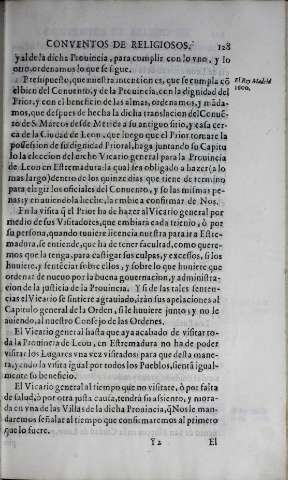 CONVENTOS DE RELIGIOSOS. 128
y al de la dicha Prouincia, para cumplir con lo vno, y lo
otro, ordenamos lo que se sigue.
Presupuesto, que nuestra intencion es, que se cumpla cõ
el bien del Conuento, y de la Prouincia, con la dignidad del
Prior, y con el beneficio de las almas, ordenamos, y mãda-
mos, que despues de hecha la dicha translacion del Conuẽ-
to de S. Marcos desde Merida a su antiguo sitio, y casa cer-
ca de la Ciudad de Leon, que luego que el Prior tomare la
possession de su dignidad Prioral, haga juntando su Capitu
lo la eleccion del dicho Vicario general para la Prouincia
de Leon en Estremadura: la qual sea obligado a hazer (a lo
mas largo) dentro de los quinze dias que tiene de termino
para elegir los oficiales del Conuento, y so las mismas pe-
nas: y en auiendola hecho, la embie a confirmar de Nos.
En la visita q̃ el Prior ha de hazer al Vicario general por
medio de sus Visitadores, que embiarà cada trienio, ò por
su persona, quando tuuiere licencia nuestra para ir a Estre-
madura, se entiende, que ha de tener facultad, como quere-
mos que la tenga, para castigar sus culpas, y excessos, si los
huuiere, y sentenciar sobre ellos, y sobre lo que huuiere que
ordenar de nueuo por la buena gouernacion, y administra-
cion de la justicia de la Prouincia. Y si de las tales senten-
cias el Vicario se sintiere agrauiado, iràn sus apelaciones al
Capitulo general de la Orden, si le huuiere junto: y no le
auiendo, al nuestro Consejo de las Ordenes.
El Vicario general hasta que aya acabado de visitar to-
da la Prouincia de Leon, en Estremadura no ha de poder
visitar los Lugares vna vez visitados: para que desta mane-
ra, yendo la visita igual por todos los Pueblos, sientã igual-
mente su beneficio.
El Vicario general al tiempo que no visitare, ò por falta
de salud, ò por otra justa causa, tendrà su assiento, y mora-
da en vna de las Villas de la dicha Prouincia, q̃ Nos le man-
daremos señalar al tiempo que confirmaremos al primero
que lo fuere.
Y 2 El
El Rey Madrid
1600.